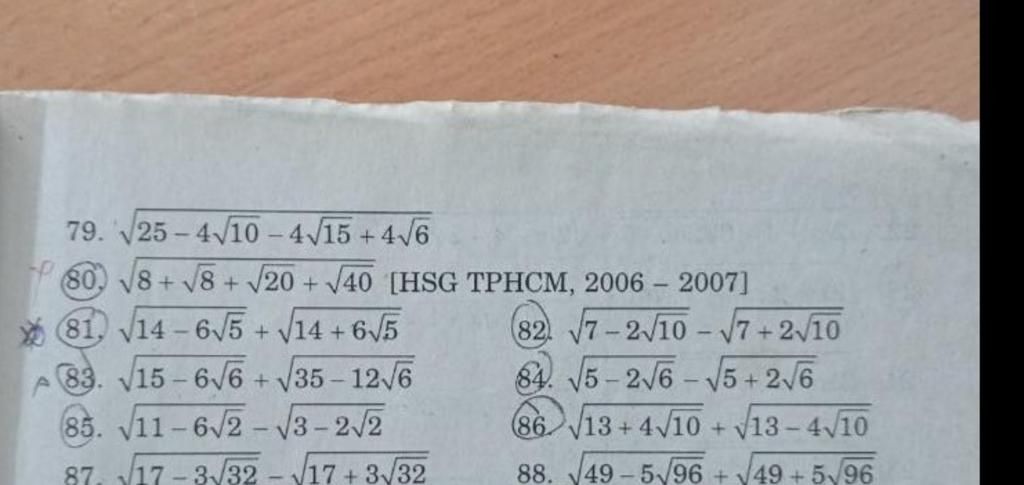 79. √(25 − 4√10 − 4√15 + 4√6)
80. √(8 + √8 + √20 + √40) [HSG TPHCM, 2006 − 2007]
81. √(14 − 6√5) + √(14 + 6√5) 82. √(7 − 2√10) − √(7 + 2√10)
83. √(15 − 6√6) + √(35 − 12√6) 84. √(5 − 2√6) − √(5 + 2√6)
85. √(11 − 6√2) − √(3 − 2√2) 86. √(13 + 4√10) + √(13 − 4√10)
87. √(17 − 3√32) − √(17 + 3√32) 88. √(49 − 5√96) + √(49 + 5√96)